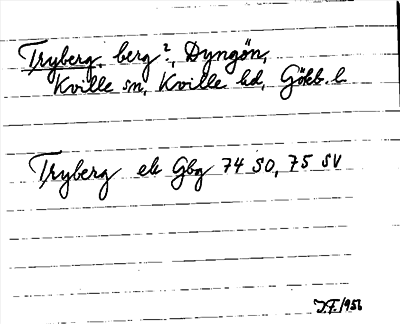 Tryberg, berg?, Dyngön,
Kville sn, Kville hd, Gökb. l.
Tryberg ek Gbg 74 SO, 75 SV
I.F./1956